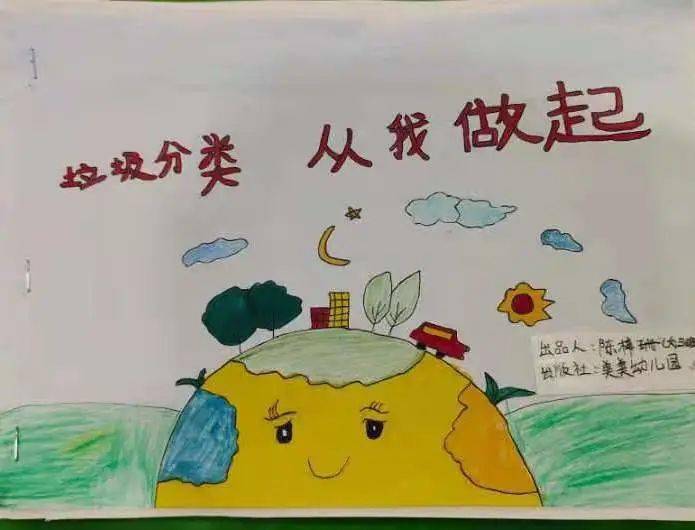 垃圾分类 从我做起
出品人:陈梓珊
出版社:美美幼儿园